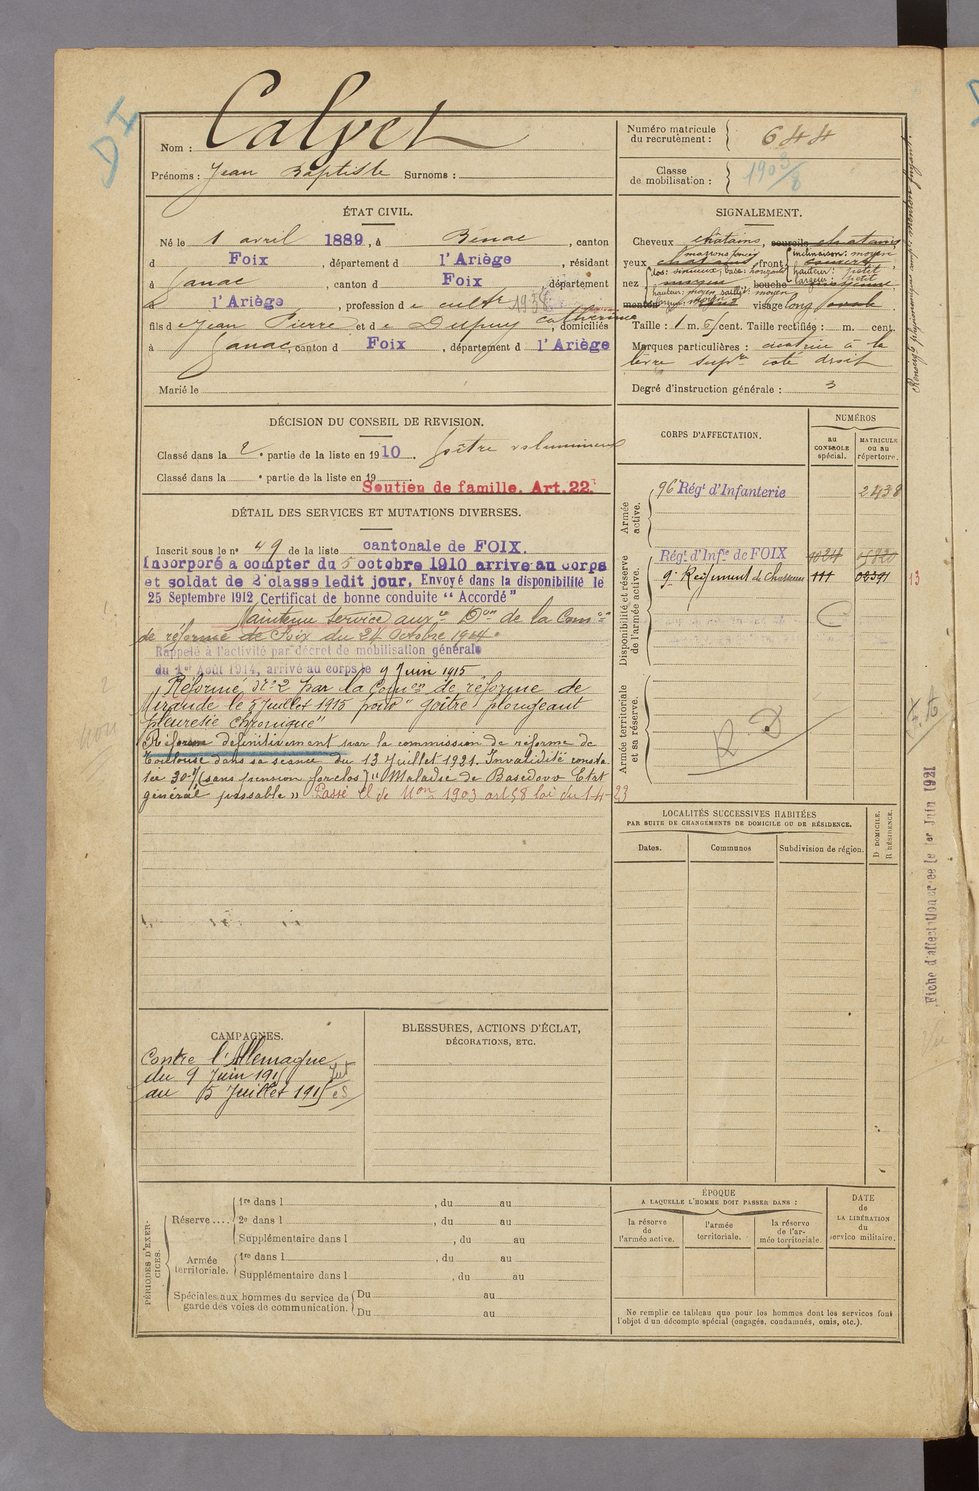 DI
Nom : Calvet
Prénoms : Jean Baptiste Surnoms :
Numéro matricule du recrutement : 644
Classe de mobilisation : 1903/8
ÉTAT CIVIL.
Né le 1 avril 1889, à Bénac, canton
d Foix, département d l'Ariège, résidant
à Ganac, canton d Foix département
d l'Ariège, profession d cultr
fils de Jean Pierre et de Dupuy Catherine, domiciliés
à Ganac, canton d Foix, département d l'Ariège
Marié le
SIGNALEMENT.
Cheveux châtains, sourcils chatains
yeux marrons foncés front inclinaison: moyen
hauteur: petit
largeur: petit
nez dos: sinueux, base: horizontale
hauteur: moyen, saillie: moyen
bouche
menton visage long ovale
Taille : 1 m. cent. Taille rectifiée : m. cent.
Marques particulières : cicatrice à la
lèvre supre coté droit
Degré d'instruction générale : 3
DÉCISION DU CONSEIL DE REVISION.
Classé dans la 2e partie de la liste en 1910. Goître volumineux
Classé dans la e partie de la liste en 19
Soutien de famille. Art. 22.
DÉTAIL DES SERVICES ET MUTATIONS DIVERSES.
Inscrit sous le n° 49 de la liste cantonale de FOIX.
Incorporé à compter du 5 octobre 1910 arrivé au corps
et soldat de 2e classe ledit jour. Envoyé dans la disponibilité le
25 Septembre 1912 Certificat de bonne conduite "Accordé"
Maintenu service aux.re Don de la Comon
de réforme de Foix du 24 Octobre 1914.
Rappelé à l'activité par décret de mobilisation générale
du 1er Août 1914, arrivé au corps le 9 Juin 1915
Réformé N°2 par la Comon de réforme de
Mirande le 5 Juillet 1915 pour "goitre plongeant
pleurésie chronique"
Réformé définitivement par la commission de réforme de
Toulouse dans sa séance du 13 Juillet 1921. Invalidité consta-
tée 30% (sans pension forclos) "Maladie de Basedow Etat
général passable" Passé cl de Mon 1903 art 58 loi du 1-4-23
CORPS D'AFFECTATION.
NUMÉROS
au CONTROLE spécial.
MATRICULE ou au répertoire.
Armée active.
96e Régt d'Infanterie 2438
Disponibilité et réserve de l'armée active.
Régt d'Infie de FOIX
9e Régiment de Chasseurs 111
13
Armée territoriale et sa réserve.
R D
LOCALITÉS SUCCESSIVES HABITÉES
PAR SUITE DE CHANGEMENTS DE DOMICILE OU DE RÉSIDENCE.
Dates.
Communes
Subdivision de région.
D DOMICILE.
R RÉSIDENCE.
Fiche d'affectation créée le 1er Juin 1921
CAMPAGNES.
Contre l'Allemagne
du 9 Juin 1915
au 5 Juillet 1915
BLESSURES, ACTIONS D'ÉCLAT,
DÉCORATIONS, ETC.
PÉRIODES D'EXERCICES.
Réserve....
1re dans l , du au
2e dans l , du au
Supplémentaire dans l , du au
Armée territoriale.
1re dans l , du au
Supplémentaire dans l , du au
Spéciales aux hommes du service de garde des voies de communication.
Du au
Du au
ÉPOQUE
A LAQUELLE L'HOMME DOIT PASSER DANS :
la réserve de l'armée active.
l'armée territoriale.
la réserve de l'armée territoriale.
DATE de LA LIBÉRATION du service militaire.
Ne remplir ce tableau que pour les hommes dont les services font
l'objet d'un décompte spécial (engagés, condamnés, omis, etc.).